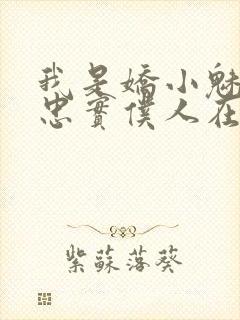 我是嬌小魅
忠實僕人在
紫蘇落葵